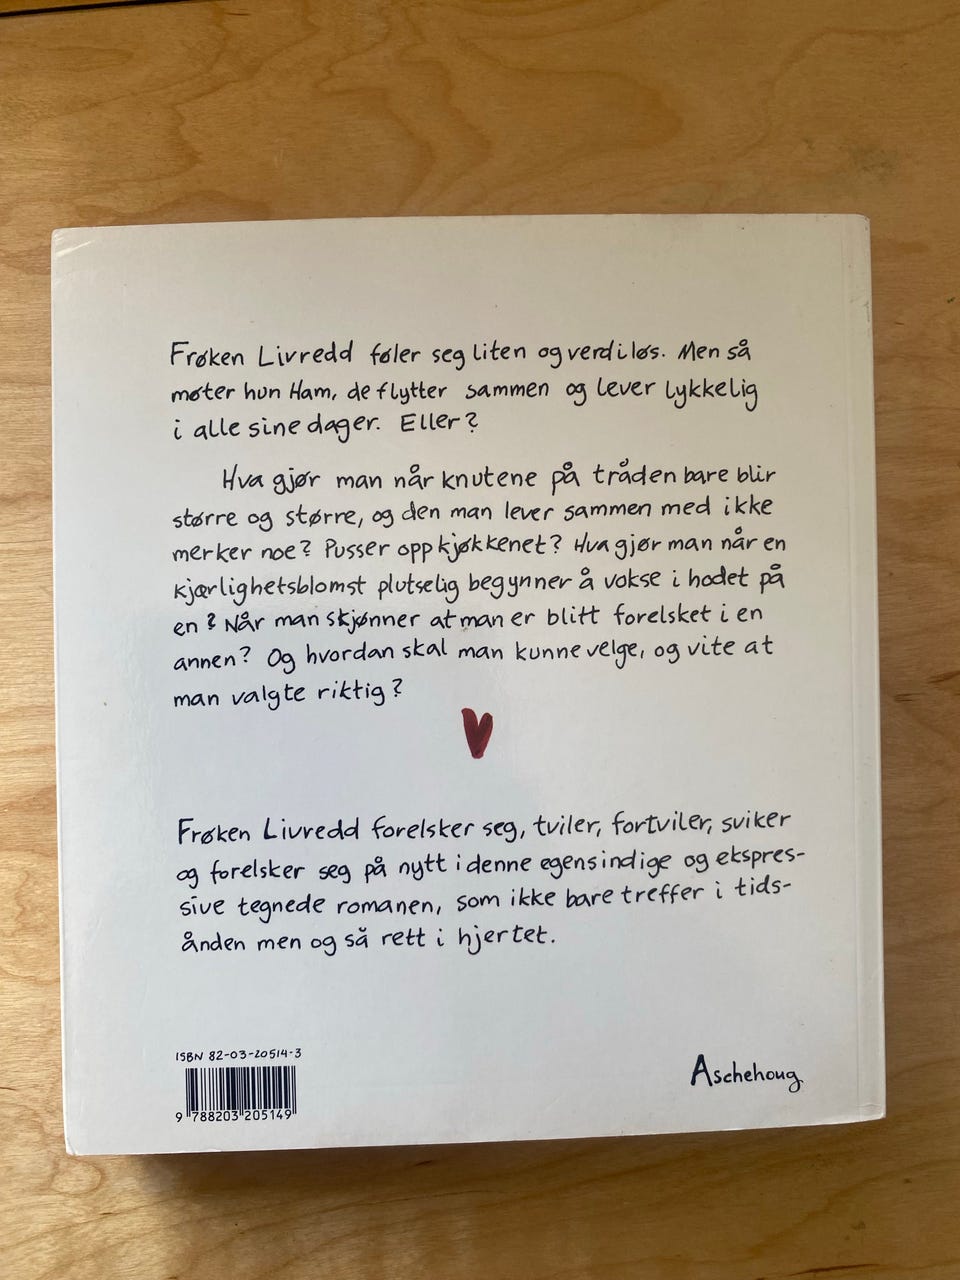 Frøken Livredd føler seg liten og verdiløs. Men så
møter hun Ham, de flytter sammen og lever lykkelig
i alle sine dager. Eller?
Hva gjør man når knutene på tråden bare blir
større og større, og den man lever sammen med ikke
merker noe? Pusser opp kjøkkenet? Hva gjør man når en
kjærlighetsblomst plutselig begynner å vokse i hodet på
en? Når man skjønner at man er blitt forelsket i en
annen? Og hvordan skal man kunne velge, og vite at
man valgte riktig?
Frøken Livredd forelsker seg, tviler, fortviler, sviker
og forelsker seg på nytt i denne egensindige og ekspres-
sive tegnede romanen, som ikke bare treffer i tids-
ånden men og så rett i hjertet.
ISBN 82-03-20514-3
9 788203 205149
Aschehoug